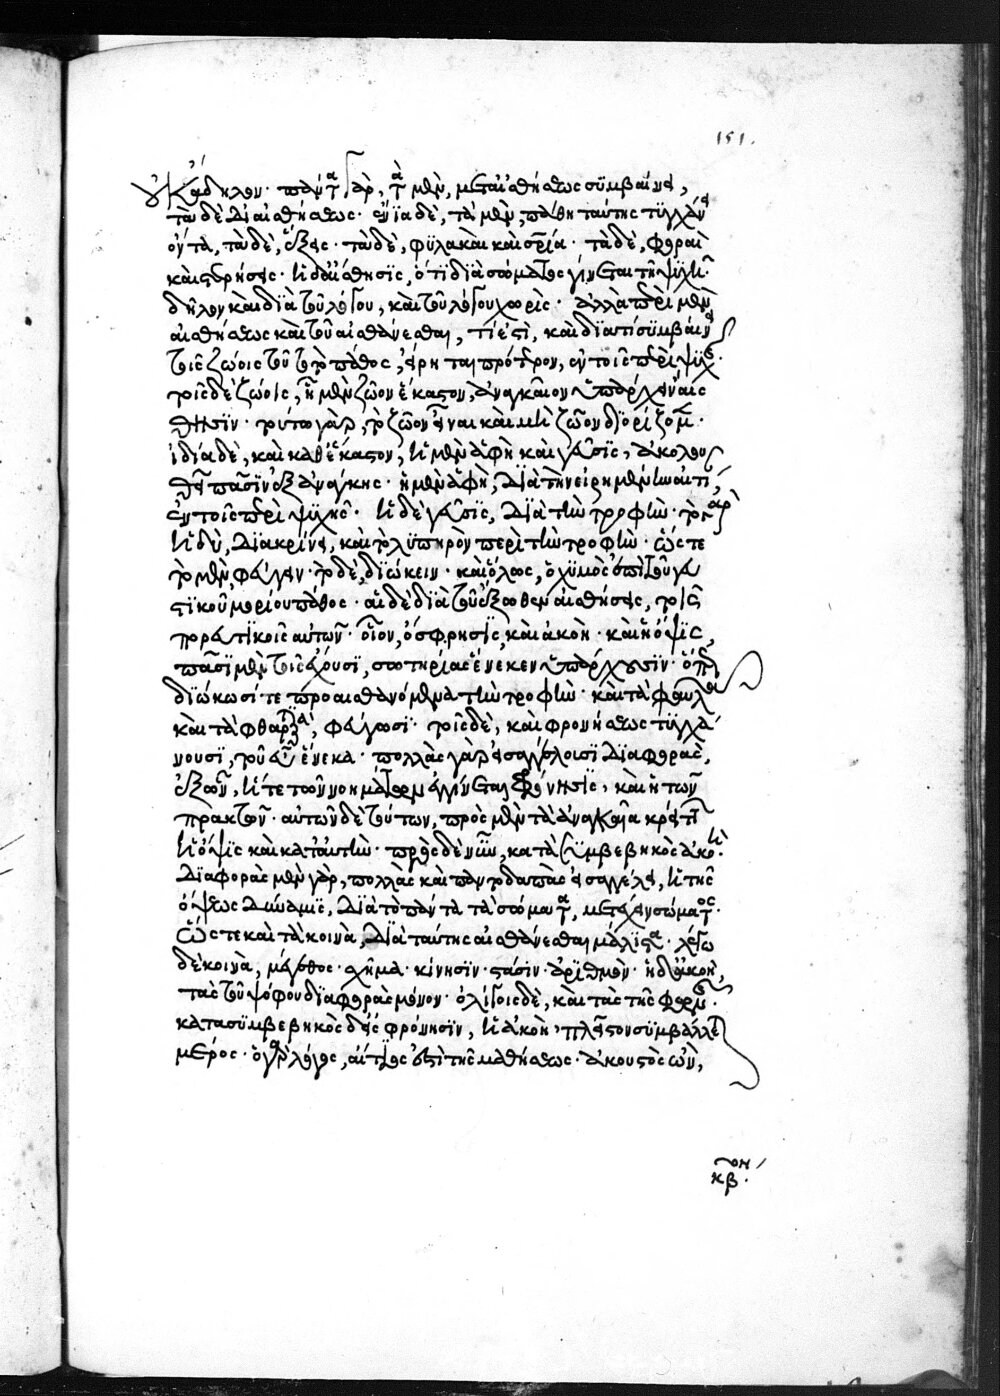 151.
οὐκ ἄδηλον· πάντα γὰρ, τὰ μὲν, μετ' αἰσθήσεως συμβαίνει,
τὰ δὲ δι' αἰσθήσεως· ἔνια δὲ, τὰ μὲν, πάθη ταύτης τυγχάνει
ὄντα, τὰ δὲ, ἕξεις· τὰ δὲ, φυλακαὶ καὶ σωτηρίαι· τὰ δὲ, φθοραὶ
καὶ στερήσεις· ἡ δ' αἴσθησις, ὅτι διὰ σώματος γίνεται τῇ ψυχῇ·
δῆλον καὶ διὰ τοῦ λόγου, καὶ τοῦ λόγου χωρίς· ἀλλὰ περὶ μὲν
αἰσθήσεως καὶ τοῦ αἰσθάνεσθαι, τί ἐστὶ, καὶ διὰ τί συμβαίνει
τοῖς ζώοις τοῦτο τὸ πάθος, εἴρηται πρότερον, ἐν τοῖς περὶ ψυχῆς·
τοῖς δὲ ζώοις, ᾗ μὲν ζῶον ἕκαστον, ἀναγκαῖον ὑπάρχειν αἴσ
θησιν· τούτω γὰρ, τὸ ζῶον εἶναι καὶ μὴ ζῶον διορίζομεν·
ἰδία δὲ, καὶ καθ' ἕκαστον, ἡ μὲν ἁφὴ καὶ γεῦσις, ἀκολου
θεῖ πᾶσιν ἐξ ἀνάγκης· ἡ μὲν ἁφὴ, διὰ τὴν εἰρημένην αἰτίαν
ἐν τοῖς περὶ ψυχῆς· ἡ δὲ γεῦσις, διὰ τὴν τροφήν· τὸ γὰρ
ἡδὺ, διακρίνει, καὶ τὸ λυπηρὸν περὶ τὴν τροφήν· ὥστε
τὸ μὲν, φεύγειν· τὸ δὲ, διώκειν· καὶ ὅλως, ὁ χυμὸς ἐστὶ τοῦ γευ
στικοῦ μορίου πάθος· αἱ δὲ διὰ τοῦ ἔξωθεν αἰσθήσεις, τοῖς
πορευτικοῖς αὐτῶν· οἷον, ὄσφρησις, καὶ ἀκοὴ· καὶ ἡ ὄψις,
πᾶσι μὲν τοῖς ἔχουσι, σωτηρίας ἕνεκεν ὑπάρχουσιν· ὅπως
διώκωσί τε προαισθανόμενα τὴν τροφήν· καὶ τὰ φαῦλα
καὶ τὰ φθαρτικὰ, φεύγωσι· τοῖς δὲ, καὶ φρονήσεως τυγχά
νουσι, τοῦ εὖ ἕνεκα· πολλὰς γὰρ εἰσαγγέλλουσι διαφορὰς,
ἐξ ὧν, ἥ τε τῶν νοημάτων ἐγγίνεται φρόνησις, καὶ ἡ τῶν
πρακτῶν· αὐτῶν δὲ τούτων, πρὸς μὲν τὰ ἀναγκαῖα κρείττων
ἡ ὄψις καὶ καθ' αὑτὴν· πρὸς δὲ νοῦν, κατὰ συμβεβηκὸς ἀκοή·
διαφορὰς μὲν γὰρ, πολλὰς καὶ παντοδαπὰς εἰσαγγέλλει, ἡ τῆς
ὄψεως δύναμις, διὰ τὸ πάντα τὰ σώματα, μετέχειν χρώματος·
ὥστε καὶ τὰ κοινὰ, διὰ ταύτης αἰσθάνεσθαι μάλιστα· λέγω
δὲ κοινὰ, μέγεθος· σχῆμα· κίνησιν· στάσιν· ἀριθμὸν· ἡ δ' ἀκοὴ,
τὰς τοῦ ψόφου διαφορὰς μόνον· ὀλίγοις δὲ, καὶ τὰς τῆς φωνῆς·
κατὰ συμβεβηκὸς δὲ εἰς φρόνησιν, ἡ ἀκοὴ, πλεῖστον συμβάλλεται
μέρος· ὁ γὰρ λόγος, αἴτιος ἐστὶ τῆς μαθήσεως· ἀκουστὸς ὢν,
κβον